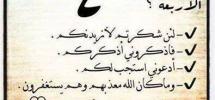 الأربعه ؟
- لئن شكرتم لأزيدنكم .
- فاذكروني أذكركم .
- أدعوني استجب لكم .
- وماكان الله معذبهم وهم يستغفرون .